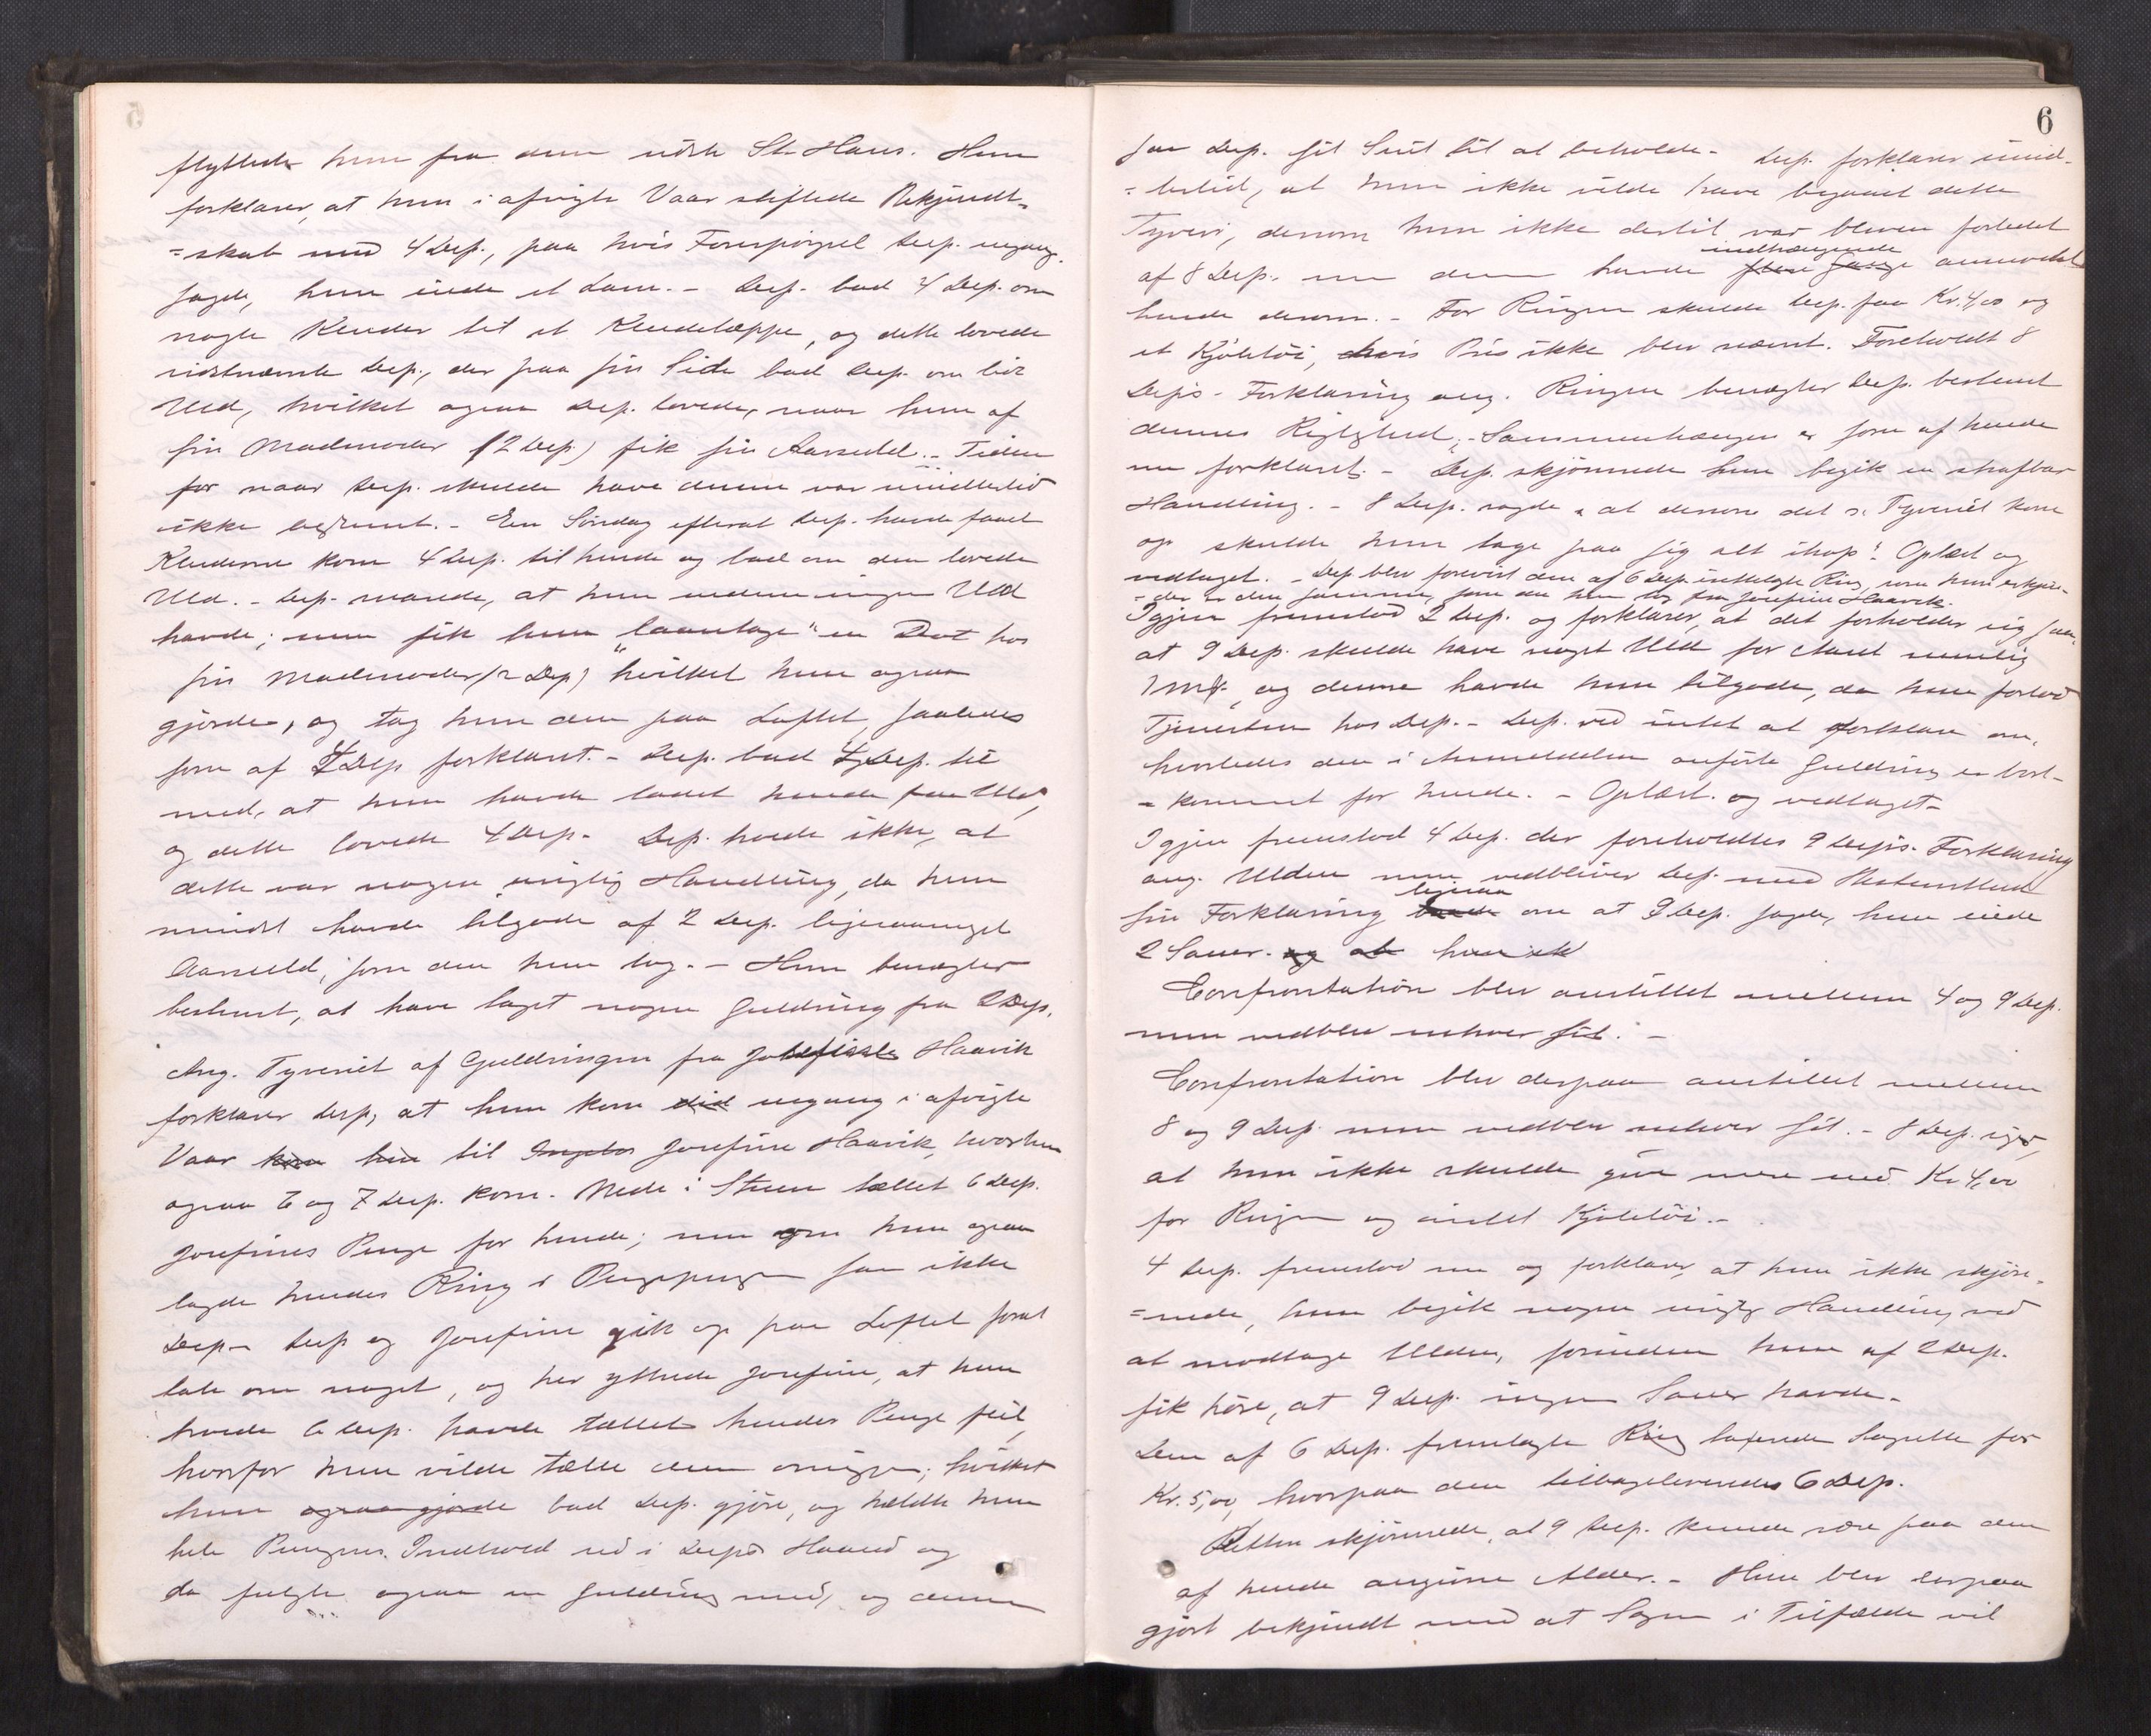 flyttede hun fra dem sidste St. Hans. Hun
forklarer, at hun i afvigte Vaar stiftede Bekjendt-
=skab med 4 Dep., paa hvis Forespörgsel Dep. engang
sagde, hun eiede et Lam. - Dep. bad 4 Dep. om
nogle Kluder til et Kludetæppe, og dette lovede
sidstnævnte Dep., der paa sin Side bad Dep. om lidt
Uld, hvilket ogsaa Dep. lovede, naar hun af
sin Madmoder (2 Dep) fik sin Aarsuld. - Tiden
for naar Dep. skulde have denne var imidlertid
ikke bestemt. - En Söndag efterat Dep. havde faaet
Kluderne kom 4 Dep. til hende og bad om den lovede
Uld. - Dep. svarede, at hun endnu ingen Uld
havde; men fik hun "laantage" en Dot hos
sin Madmoder (2 Dep) hvilket hun ogsaa
gjorde, og tog hun den paa Loftet, saaledes
som af 4 Dep forklaret. - Dep. bad 4 Dep. tie
med, at hun havde ladet hende faa Uld,
og dette lovede 4 Dep. Dep. troede ikke, at
dette var nogen urigtig Handling, da hun
mindst havde tilgode af 2 Dep. ligesaameget
Aarsuld, som den hun tog. - Hun benægter
bestemt, at have taget nogen Guldring fra 2 Dep.
Ang. Tyveriet af Guldringen fra Josefine Haavik
forklarer Dep., at hun kom did engang i afvigte
Vaar kom hun til Josefine Haavik, hvorhen
ogsaa 6 og 7 Dep. kom. Nede i Stuen tællet 6 Dep.
Josefines Penge for hende; men om hun ogsaa
lagde hendes Ring i Pengepungen saa ikke
Dep. - Dep og Josefine gik op paa Loftet forat
tale om noget, og her yttrede Josefine, at hun
troede 6 Dep. havde tællet hendes Penge feil,
hvorfor hun vilde tælle dem omigjen; hvilket
hun ogsaa gjorde bad Dep. gjöre, og hældte hun
hele Pungens Indhold ud i Deps Haand og
da fulgte ogsaa en Guldring med, og denne
6
saa Dep. sit Snit til at beholde. - Dep. forklarer imid-
=lertid, at hun ikke vilde have begaaet dette
Tyveri, dersom hun ikke dertil var bleven forledet
indtrængende
af 8 Dep., men denne havde flere Gange anmodet
hende derom. - For Ringen skulde Dep. faa Kr. 4,00 og
et Kjöletöi, hvis Pris ikke blev nævnt. Foreholdt 8
Dep's Forklaring ang. Ringen benægter Dep. bestemt
dennes Rigtighed; - Sammenhængen er som af hende
nu forklaret. - Dep. skjönnede hun begik en strafbar
Handling. - 8 Dep. sagde "at dersom det s: Tyveriet kom
op skulde hun tage paa sig alt ihop". Oplæst og
vedtaget. - Dep. blev forevist den af 6 Dep. indleverede Ring, som hun erkjen-
=der er den samme, som den hun tog fra Josefine Haavik.
Igjen fremstod 2 Dep. og forklarer, at det forholder sig saa,
at 9 Dep. skulde have noget Uld for Aaret nemlig
1 mk, og denne havde hun tilgode, da hun forlod
Tjenesten hos Dep. - Dep. ved intet at forklare om,
hvorledes den i Anmeldelsen anförte Guldring er bort-
=kommet for hende. - Oplæst og vedtaget -
Igjen fremstod 4 Dep. der foreholdtes 9 Dep's Forklaring
ang. Ulden men vedbliver Dep. med Bestemthed
ligesaa
sin Forklaring baade om at 9 Dep. sagde, hun eiede
2 Sauer. og at hun ik
Confrontation blev anstillet mellem 4 og 9 Dep.
men vedblev enhver sit. -
Confrontation blev derpaa anstillet mellem
8 og 9 Dep. men vedblev enhver sit. - 8 Dep. siger,
at hun ikke skulde give mere end Kr 4,00
for Ringen og intet Kjöletöi. -
4 Dep. fremstod nu og forklarer, at hun ikke skjön-
=nede, hun begik nogen urigtig Handling ved
at modtage Ulden, forinden hun af 2 Dep.
fik höre, at 9 Dep. ingen Sauer havde.
Den af 6 Dep. fremlagte Ring taxerede Lagrette for
Kr. 5,00, hvorpaa den tilbageleveredes 6 Dep.
Retten skjönnede, at 9 Dep. kunde være paa den
af hende angivne Alder. - Hun blev derpaa
gjort bekjendt med at Sagen i Tilfælde vil